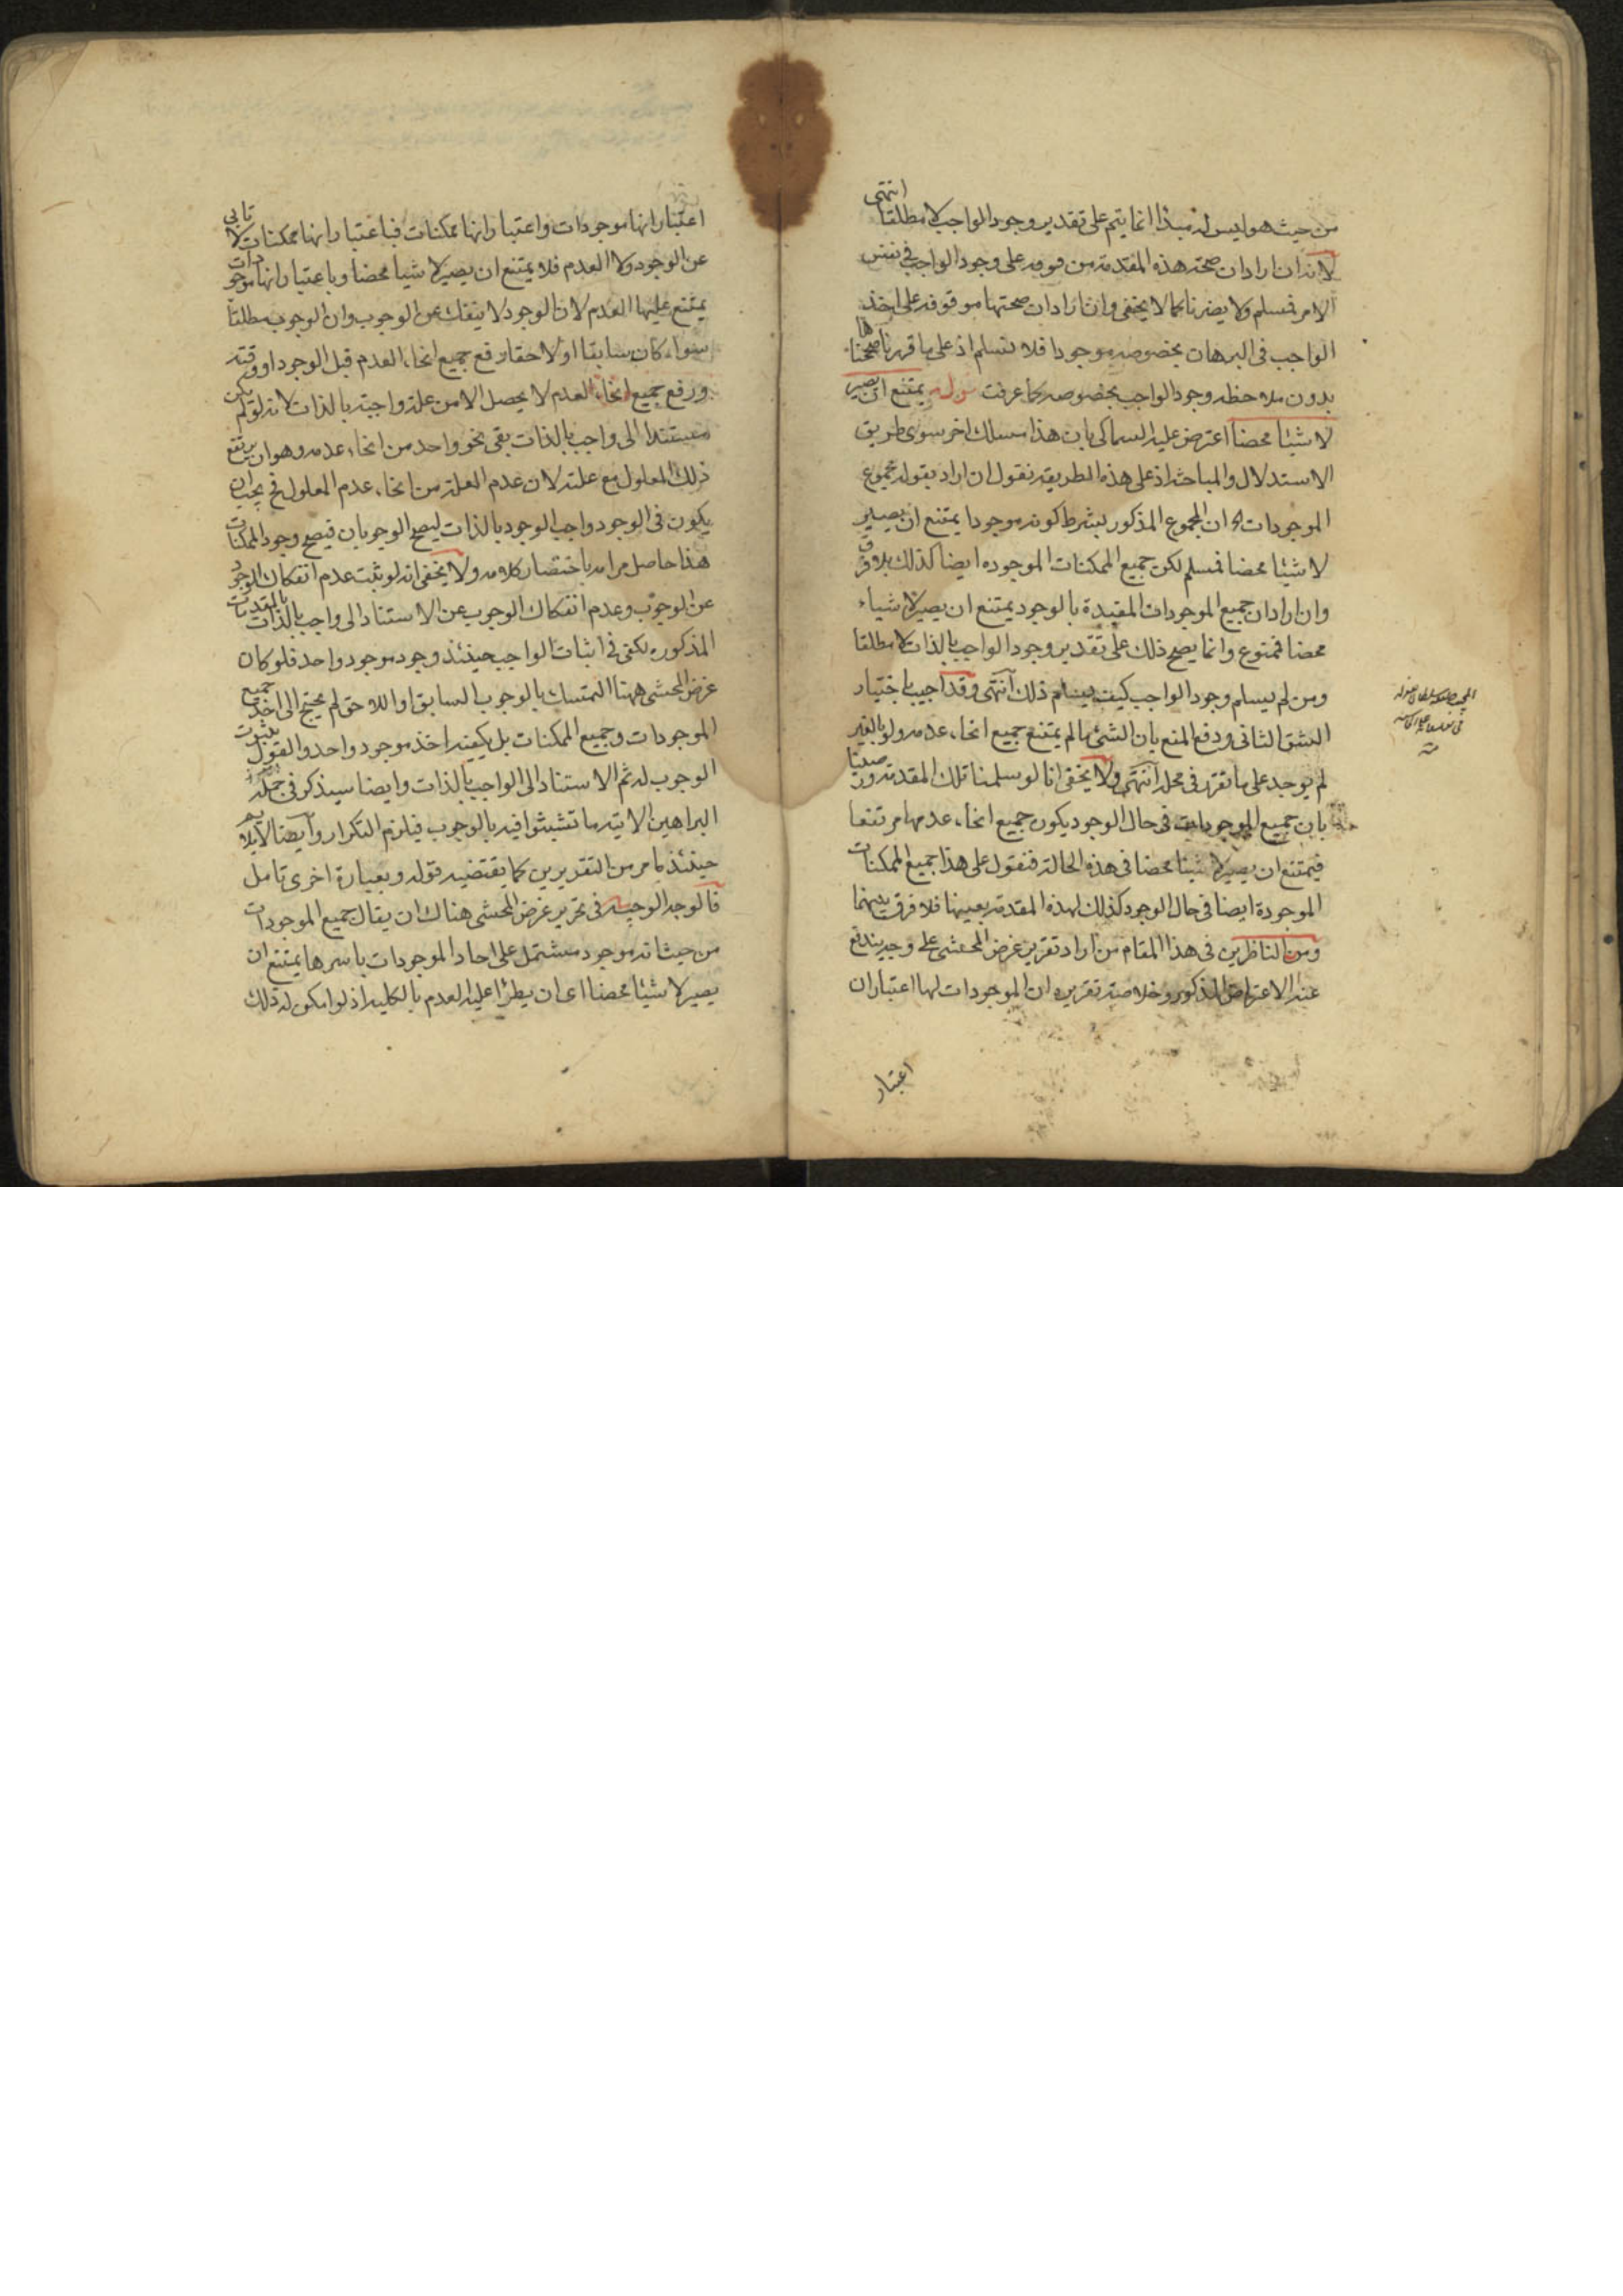 من حيث هو ليس له مبدأ انما يتم على تقدير وجود الواجب لا مطلقا انتهى
لانه ان اراد ان صحة هذه المقدمة موقوفه على وجود الواجب في نفس
الامر فمسلم ولا يضرنا كما لا يخفى وان اراد ان صحتها موقوفه على اخذ
الواجب في البرهان بخصوصه موجودا فلا نسلم اذ على ما قررنا صححناها
بدون ملاحظه وجود الواجب بخصوصه كما عرفت قوله يمتنع ان يصير
لا شيئا محضا اعترض عليه السماكى بان هذا مسلك اخر سوى طريق
الاستدلال والمباحثه اذ على هذه الطريقه نقول ان اراد بقوله مجموع
الموجودات الخ ان المجموع المذكور بشرط كونه موجودا يمتنع ان يصير
لا شيئا محضا فمسلم لكن جميع الممكنات الموجوده ايضا كذلك بلا فرق
وان اراد ان جميع الموجودات المقيدة بالوجود يمتنع ان يصير لا شياء
محضا فممنوع وانما يصح ذلك على تقدير وجود الواجب بالذات لا مطلقا
ومن لم يسلم وجود الواجب كيف يسلم ذلك انتهى وقد اجيب باختيار
الشق الثانى ودفع المنع بان الشئ ما لم يمتنع جميع انحاء عدمه ولو بالغير
لم يوجد على ما تقرر في محله انتهى ولا يخفى انا لو سلمنا تلك المقدمه ورضينا
بان جميع الموجودات في حال الوجود يكون جميع انحاء عدمها مرتفعا
فيمتنع ان يصير لا شيئا محضا في هذه الحالة فنقول على هذا جميع الممكنات
الموجودة ايضا في حال الوجود كذلك لهذه المقدمة بعينها فلا فرق بينهما
ومن الناظرين في هذا المقام من اراد تقرير غرض المحشى على وجه يندفع
عنه الاعتراض المذكور وخلاصة تقريره ان الموجودات لها اعتباران
اعتبار
اعتبار انها موجودات واعتبار انها ممكنات فباعتبار انها ممكنات لا تابى
عن الوجود ولا العدم فلا يمتنع ان يصير لا شيأ محضا وباعتبار انها موجودات
يمتنع عليها العدم لان الوجود لا ينفك عن الوجوب وان الوجوب مطلقا
سواء كان سابقا او لاحقا رفع جميع انحاء العدم قبل الوجود او وقته
ورفع جميع انحاء العدم لا يحصل الا من علة واجبة بالذات لانه لو لم يكن
مستندا الى واجب بالذات بقى نحو واحد من انحاء عدمه وهو ان يرتفع
ذلك المعلول مع علته لان عدم العلة من انحاء عدم المعلول فح يجب ان
يكون في الوجود واجب الوجود بالذات ليصح الوجوبان فيصح وجود الممكنات
هذا حاصل مرامه باختصار كلامه ولا يخفى انه لو ثبت عدم انفكاك الوجود
عن الوجوب وعدم انفكاك الوجوب عن الاستناد الى واجب بالذات بالمقدمات
المذكوره يكفى في اثبات الواجب حينئذ وجود موجود واحد فلو كان
غرض المحشى ههنا التمسك بالوجوب السابق او اللاحق لم يحتج الى اخذ جميع
الموجودات وجميع الممكنات بل يكفيه اخذ موجود واحد والقول بثبوت
الوجوب له ثم الاستناد الى الواجب بالذات وايضا سيذكر في جملة
البراهين الاتية ما تشبثوا فيه بالوجوب فيلزم التكرار وايضا لا يلايم
حينئذ لما مر من التقديرين كما يقتضيه قوله وبعبارة اخرى تامل
فالوجه الوجيه في تحرير غرض المحشى هناك ان يقال جميع الموجودات
من حيث انه موجود مشتمل على احاد الموجودات باسرها يمتنع ان
يصير لا شيئا محضا اى ان يطرأ عليه العدم بالكليه اذ لو امكن له ذلك